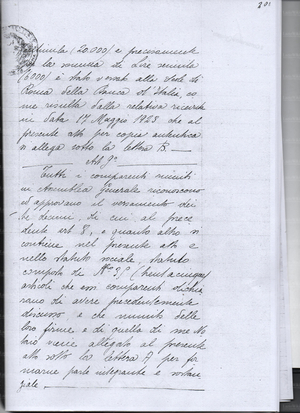 20
(20.000) e precisamente
la somma di Lire
(6000) è stato versato alla Sede di
Roma della Banca d'Italia, co
me risulta dalla relativa ricevuta
in data 17 Maggio 1923 che al
presente atto per copia autentica
si allega sotto la lettera B.
Art 9º
Tutti i comparenti riuniti
in Assemblea Generale riconoscono
ed approvano il versamento dei
decimi, di cui al prece
dente art 8, e quanto altro si
contiene nel presente atto e
nello statuto sociale, statuto
composto di Nº 35 (trentacinque)
articoli che essi comparenti dichia
rano di avere precedentemente
discusso e che munito delle
loro firme e di quella di me No
taio viene allegato al presente
atto sotto la lettera A per for
marne parte integrante e sostan
ziale.